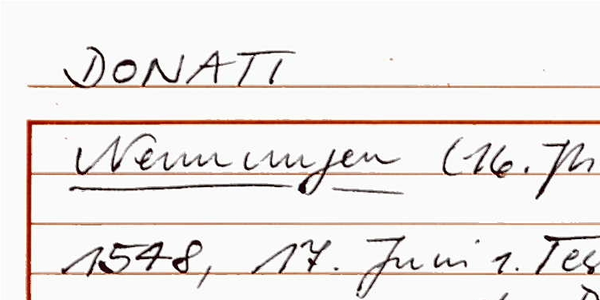 DONATI
Nenningen (16. Jh
1548, 17. Juni 1. Tes